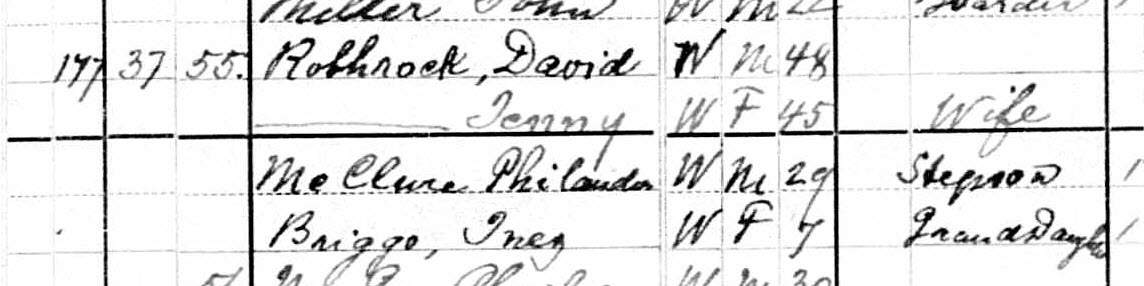 Miller John W M
177 37 55. Robhrock, David W M 48
——— Jenny W F 45 Wife
McClure Philander W M 29 Stepson 1
Briggs, Inez W F 7 GrandDaughter 1
W M 30